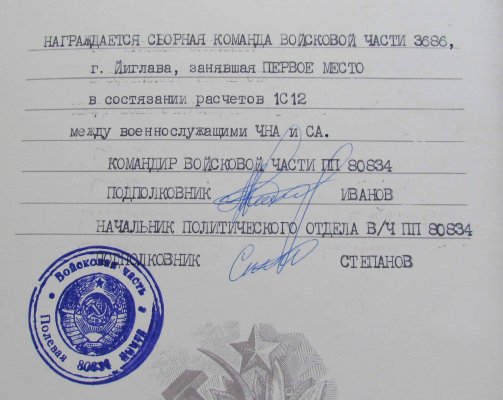 НАГРАЖДАЕТСЯ СБОРНАЯ КОМАНДА ВОЙСКОВОЙ ЧАСТИ 3686,
г. Йиглава, занявшая ПЕРВОЕ МЕСТО
в состязании расчетов 1С12
между военнослужащими ЧНА и СА.
КОМАНДИР ВОЙСКОВОЙ ЧАСТИ ПП 80834
ПОДПОЛКОВНИК ИВАНОВ
НАЧАЛЬНИК ПОЛИТИЧЕСКОГО ОТДЕЛА В/Ч ПП 80834
ПОДПОЛКОВНИК СТЕПАНОВ
Войсковая часть
Полевая почта
80834